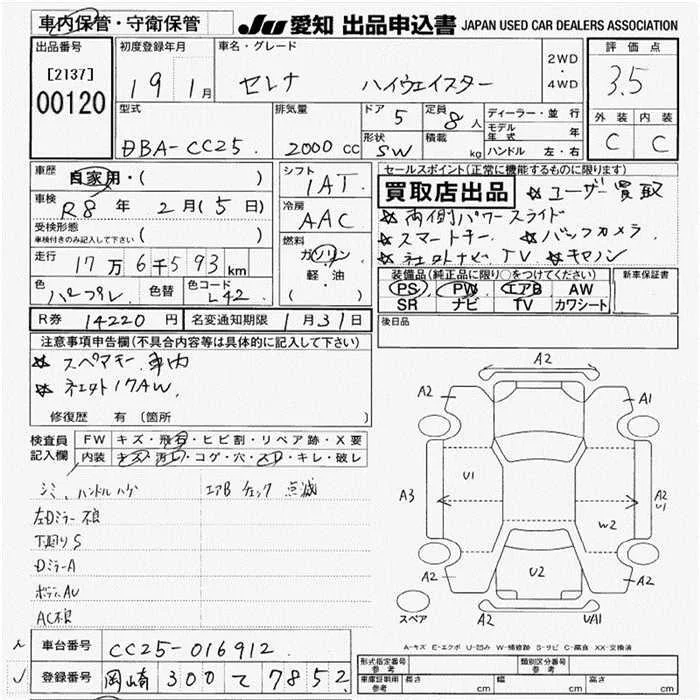 車内保管・守衛保管
JU 愛知 出品申込書 JAPAN USED CAR DEALERS ASSOCIATION
出品番号
[2137]
00120
初度登録年月
19 1月
車名・グレード
セレナ ハイウェイスター
2WD
・
4WD
評価点
3.5
外装 内装
C C
型式
DBA-CC25
排気量
2000 cc
ドア 5
定員 8人
形状 SW
積載 kg
ディーラー・並行
モデル年式 年
ハンドル 左・右
車歴
自家用・( )
車検
R8年 2月(5日)
受検形態
車検付きのみ記入して下さい ( )
走行
17万6千593km
色
パープル
色替
色コード
L42
シフト
IAT
冷房
AAC
燃料
ガソリン
軽油
( )
セールスポイント(正常に機能するものに限ります)
買取店出品 ☆ユーザー買取
☆両側パワースライド
☆スマートキー. ☆バックカメラ.
☆社外ナビ. TV. ☆キャノン
装備品(純正品に限り〇をつけてください)
PS PW エアB AW
SR ナビ TV カワシート
新車保証書
後日品
R券 14220円
名変通知期限 1月31日
注意事項申告欄(不具合内容等は具体的に記入して下さい)
☆スペアキー車内
☆社外17AW.
修復歴 有 〔箇所 〕
検査員
記入欄
FW キズ・飛石・ヒビ割・リペア跡・X要
内装 キズ・汚レ・コゲ・穴・スレ・キレ・破レ
シミ、ハンドルハゲ エアB チェック 点滅
左Dミラー不良
下廻りS
DミラーA
ボディAU
AC不良
車台番号 CC25-016912
登録番号 岡崎 300 て 7852
A2
A2 A1
U1
A3
A2
U1
W2
U2
A2 A2
A2 UA1
スペア
A-キズ E-エクボ U-凹み W-補修跡 S-サビ C-腐食 XX-交換済
形式指定番号
参考
類別区分番号
参考
車庫証明用
参考
長さ cm 幅 cm 高さ cm